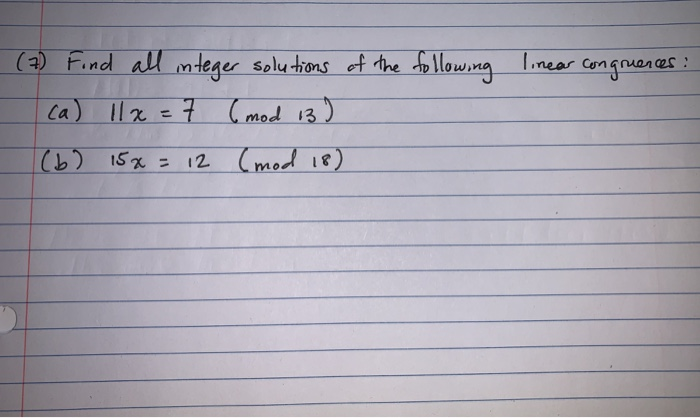 (7) Find all integer solutions of the following linear congruences :
(a) 11x = 7 (mod 13)
(b) 15x = 12 (mod 18)